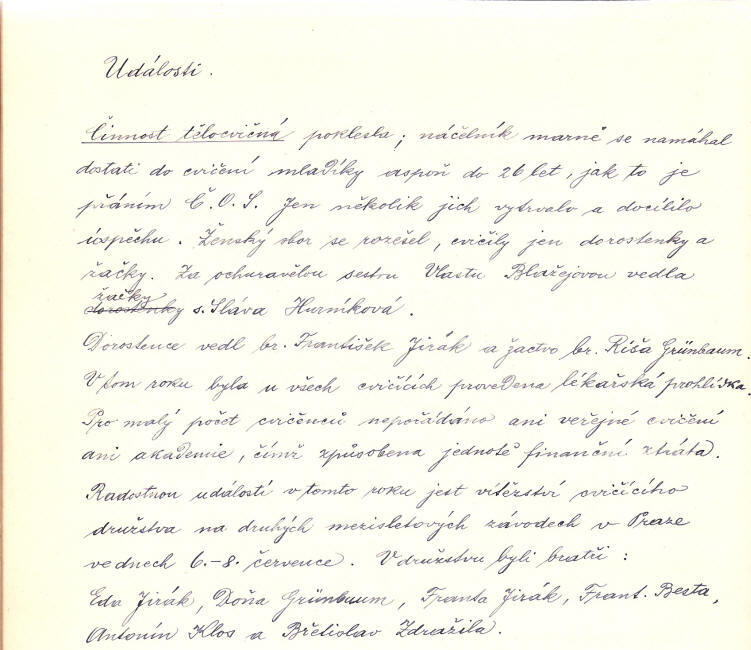 Události.
Činnost tělocvičná poklesla; náčelník marně se namáhal
dostati do cvičení mladíky aspoň do 26 let, jak to je
přáním Č.O.S. Jen několik jich vytrvalo a docílilo
úspěchu. Ženský sbor se rozešel, cvičily jen dorostenky a
žačky. Za ochuravělou sestru Vlastu Blažejovou vedla
žačky
dorostenky s. Sláva Hurníková.
Dorostence vedl br. František Jirák a žactvo br. Ríša Grünbaum.
V tom roku byla u všech cvičících provedena lékařská prohlídka.
Pro malý počet cvičenců nepořádáno ani veřejné cvičení
ani akademie, čímž způsobena jednotě finanční ztráta.
Radostnou událostí v tomto roku jest vítězství cvičícího
družstva na druhých mezisletových závodech v Praze
ve dnech 6.-8. července. V družstvu byli bratři:
Eda Jirák, Doňa Grünbaum, Franta Jirák, Frant. Besta,
Antonín Klos a Břetislav Zdražila.